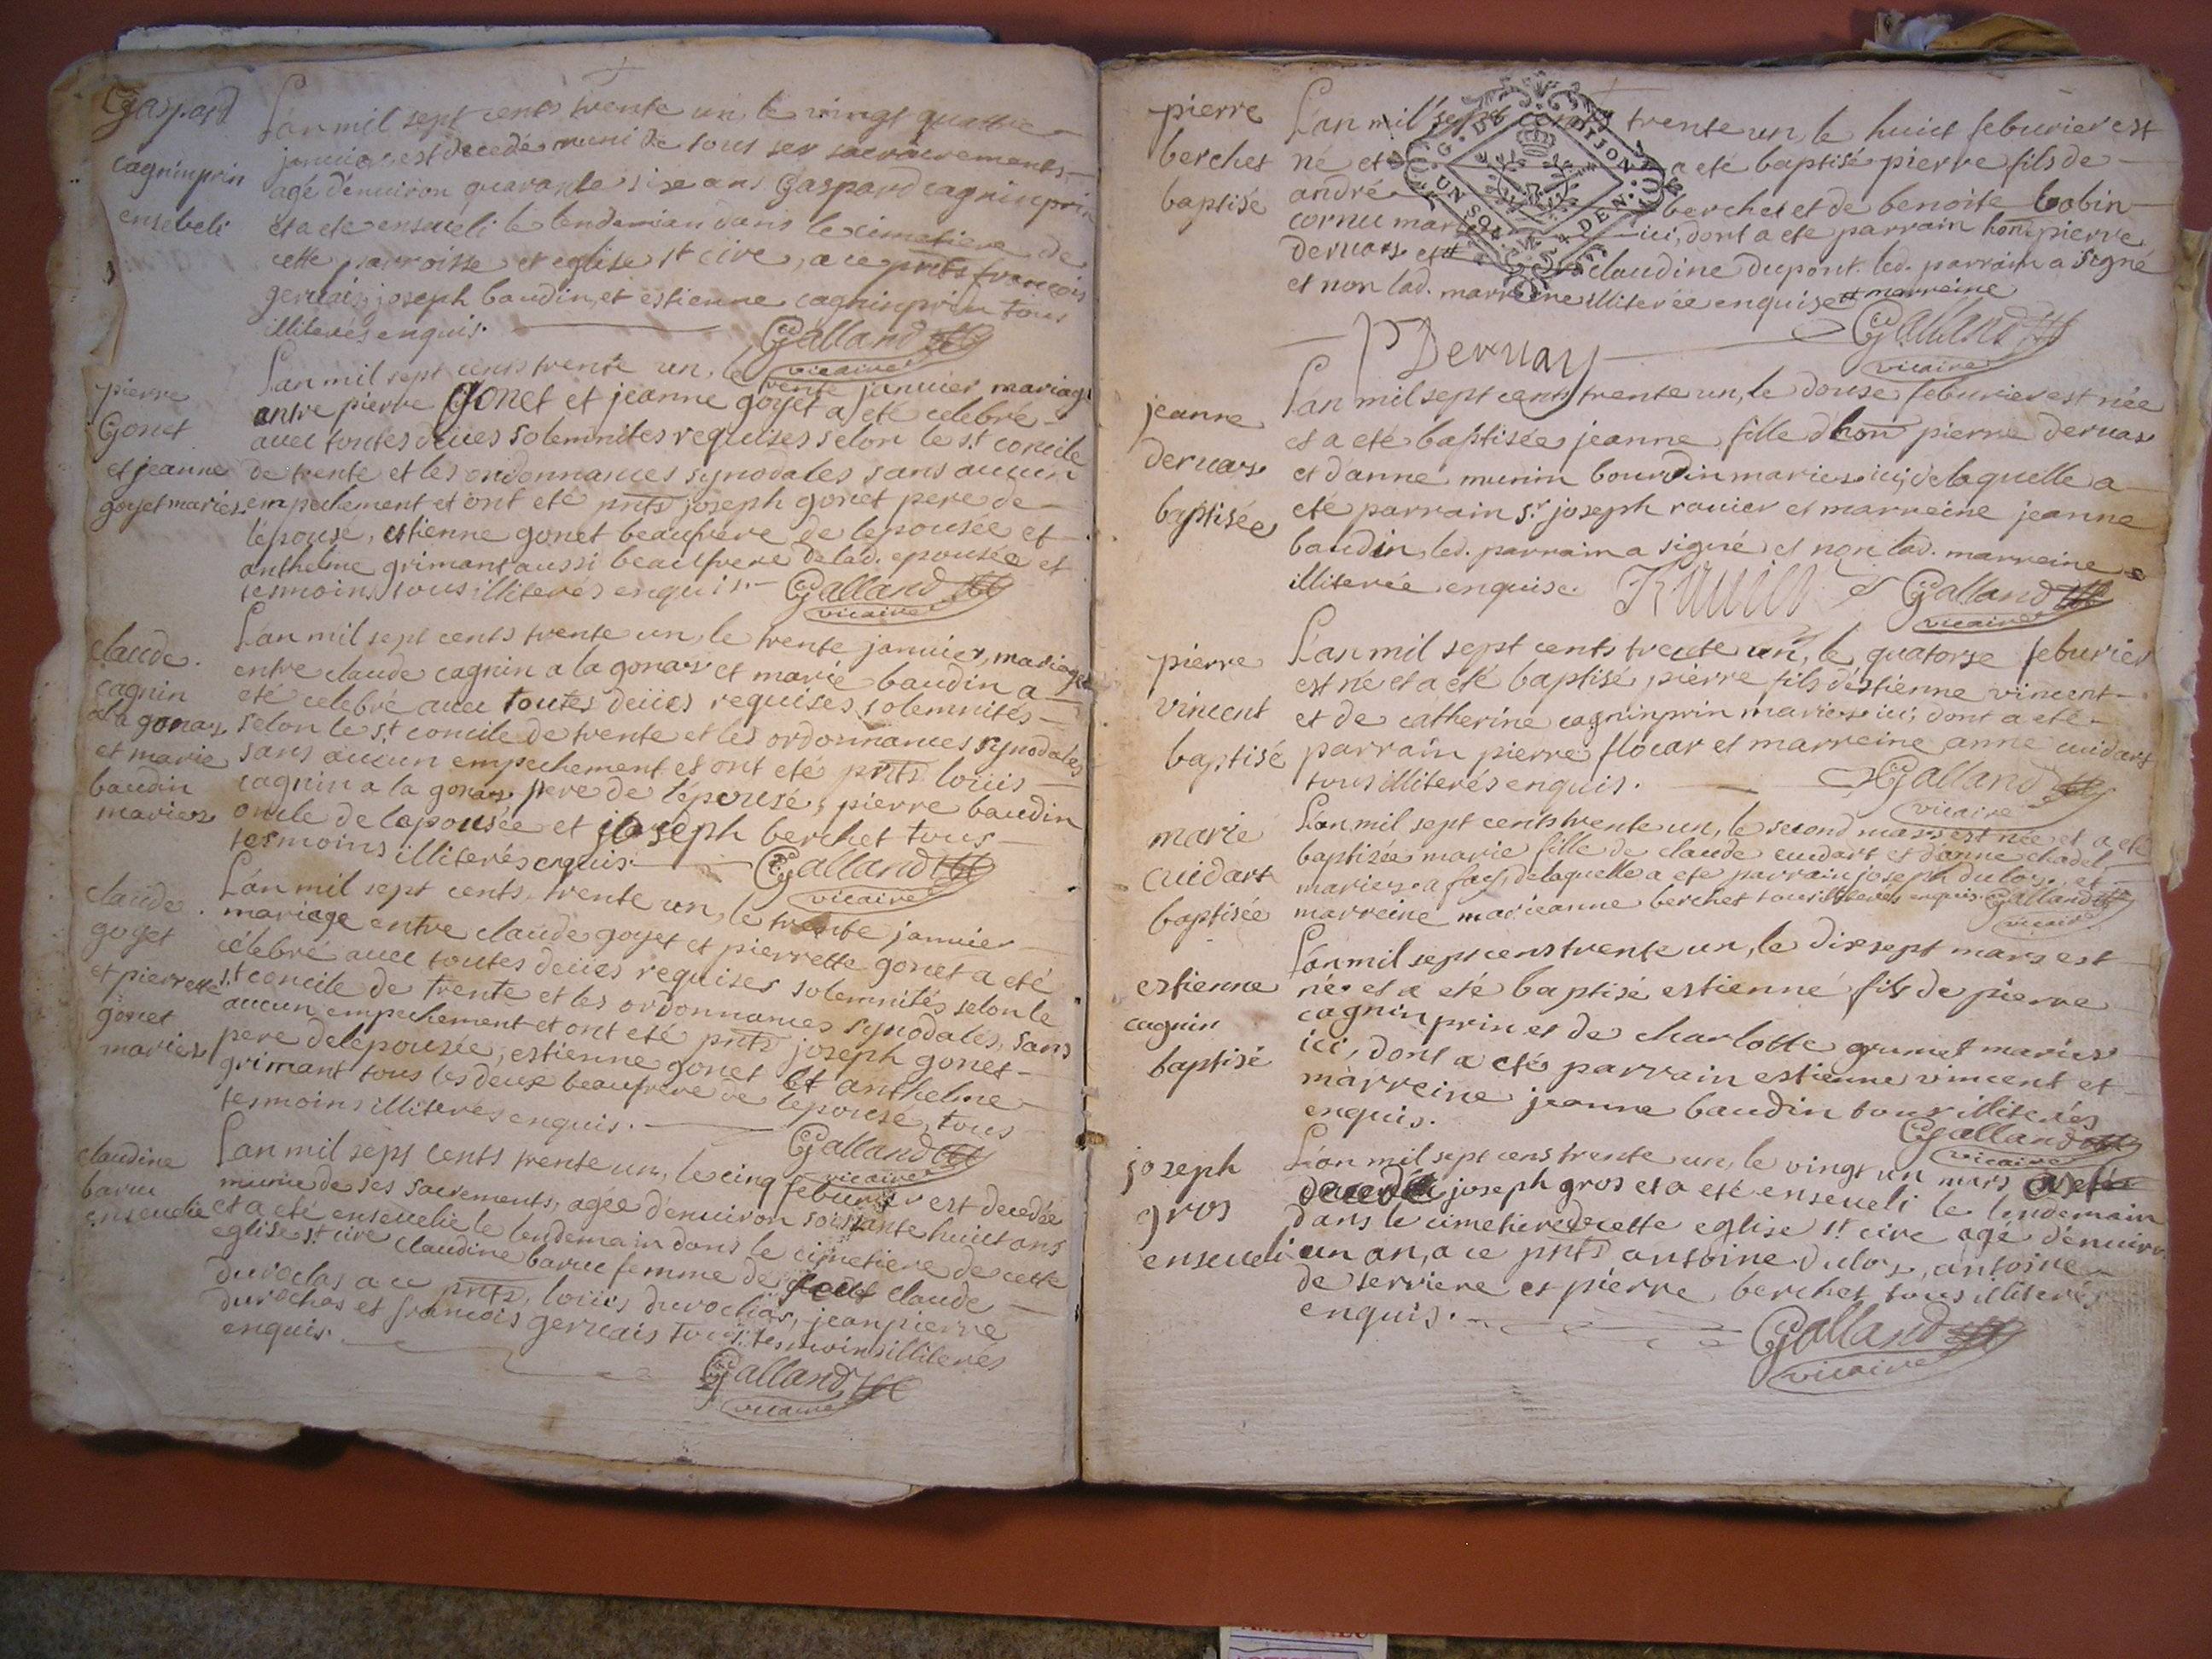 Gaspard
cagninprin
enseveli
L'an mil sept cents trente un, le vingt quattre
janvier est decedé muni de tous ses sacrements
agé d'environ quarante sixe ans Gaspard cagninprin
et a eté enseveli le lendemain dans le cimetiere de
cette parroisse et eglise st cire, a ce pnts francois
gervais, joseph baudin, et estienne cagninprin tous
illiterés enquis.
Galland
vicaire
pierre
Gonet
et jeanne
goyet mariés
L'an mil sept cents trente un, le trente janvier mariage
entre pierre Gonet et jeanne goyet a eté celebré
avec toutes deües solemnités requises selon le st concile
de trente et les ordonnances synodales sans aucun
empechement et ont eté pnts joseph gonet pere de
l'epouse, estienne gonet beaufrere de l'epousée et
anthelme grimant aussi beaufrere de lad. epousée et
tesmoins tous illiterés enquis.
Galland
vicaire
claude
cagnin
a la gonas
et marie
baudin
mariez
L'an mil sept cents trente un, le trente janvier, mariage
entre claude cagnin a la gonas et marie baudin a
eté celebré avec toutes deües requises solemnités
selon le st concile de trente et les ordonnances synodales
sans aucun empechement et ont eté pnts loüis
cagnin a la gonas, pere de l'epousé, pierre baudin
oncle de l'epousée et joseph berchet tous
tesmoins illiterés enquis.
Galland
vicaire
claude
goyet
et pierrette
gonet
mariez
L'an mil sept cents trente un, le trente janvier
mariage entre claude goyet et pierrette gonet a eté
célebré avec toutes deües requises solemnités selon le
st concile de trente et les ordonnances synodales, sans
aucun empechement et ont eté pnts joseph gonet
pere de l'epousée, estienne gonet et anthelme
grimant tous les deux beaufrere de l'epousé, tous
tesmoins illiterés enquis.
Galland
vicaire
claudine
barue
ensevelie
L'an mil sept cents trente un, le cinq feburier est decedée
munie de ses sacrements, agée d'environ soissante huict ans
et a eté ensevelie le lendemain dans le cimetiere de cette
eglise st cire claudine barue femme de claude
durochas a ce pnts, loüis durochas, jean pierre
durochas et francois gervais tous tesmoins illiterés
enquis.
Galland
vicaire
pierre
berchet
baptisé
G. DE DIJON
UN SOL 4 DEN.
L'an mil sept cents trente un, le huict feburier est
né et a eté baptisé pierre fils de
andré berchet et de benoite bobin
cornu mariez ici, dont a eté parrain hon. pierre
dervas et claudine dupont. led. parrain a signé
et non lad. marreine illiterée enquise
marreine
P Dervas
Galland
vicaire
jeanne
dervas
baptisée
L'an mil sept cents trente un, le douse feburier est née
et a eté baptisée jeanne fille d'hon pierre dervas
et d'anne munin bourdin mariez ici, de laquelle a
eté parrain sr joseph ravier et marreine jeanne
baudin, led. parrain a signé et non lad. marreine
illiterée enquise.
Ravier
Galland
vicaire
pierre
vincent
baptisé
L'an mil sept cents trente un, le quatorse feburier
est né et a eté baptisé pierre fils d'estienne vincent
et de catherine cagninprin mariez ici, dont a eté
parrain pierre flocar et marreine anne cuidart
tous illiterés enquis.
Galland
vicaire
marie
cuidart
baptisée
L'an mil sept cents trente un, le second mars est née et a eté
baptisée marie fille de claude cuidart et d'anne chadel
mariez a fay, de laquelle a eté parrain joseph dulos, et
marreine marieanne berchet tous illiterés enquis. Galland
vicaire
estienne
cagnin
baptisé
L'an mil sept cens trente un, le dixsept mars est
né et a eté baptisé estienne fils de pierre
cagninprin et de charlotte grumet mariez
ici, dont a eté parrain estienne vincent et
marreine jeanne baudin tous illiterés
enquis.
Galland
vicaire
joseph
gros
enseveli
L'an mil sept cens trente un, le vingt un mars
decedé joseph gros et a eté enseveli le lendemain
dans le cimetiere de cette eglise st cire agé d'environ
un an, a ce pnts antoine dulos, antoine
de serriere et pierre berchet tous illiterés
enquis.
Galland
vicaire